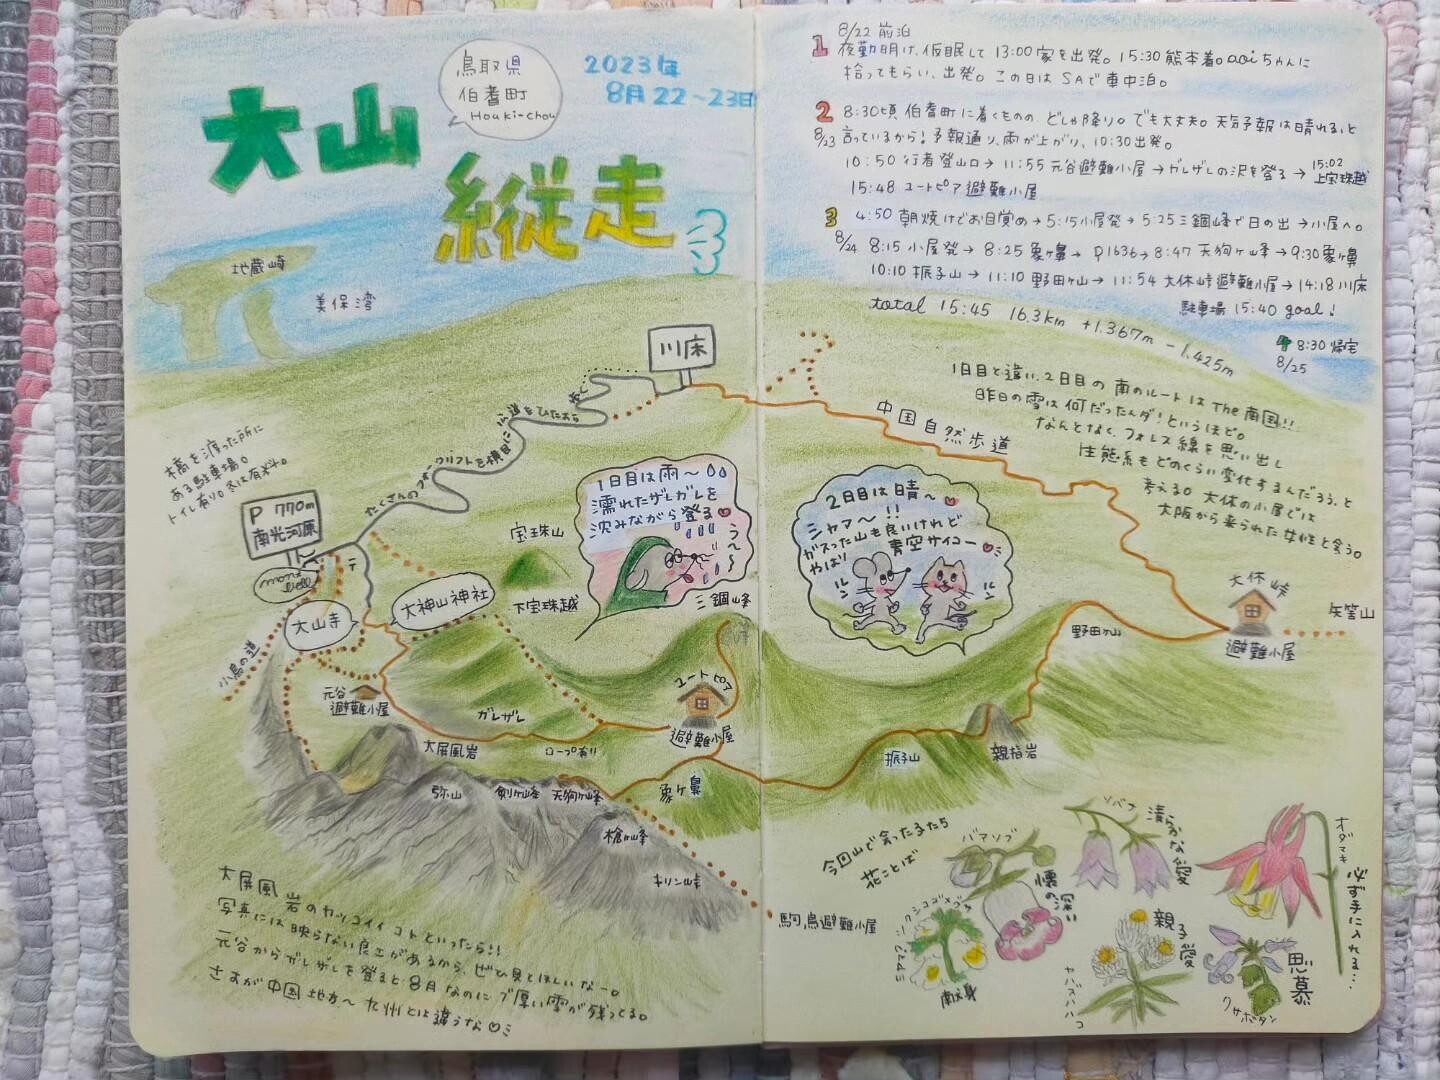 大山
縦走
鳥取県
伯耆町
Houki-chou
2023年
8月22~23日
地蔵崎
美保湾
1 8/22 前泊
夜勤明け、仮眠して 13:00 家を出発。15:30 熊本着。aoiちゃんに
拾ってもらい、出発。この日は SAで車中泊。
2 8:30頃 伯耆町に着くものの、どしゃ降り。でも大丈夫。天気予報は晴れると
8/23 言っているから!予報通り、雨が上がり、10:30出発。
10:50 行者登山口→11:55 元谷避難小屋→ガレザレの沢を登る→15:02 上宝珠越
15:48 ユートピア避難小屋
3 4:50 朝焼けでお目覚め→5:15小屋発→5:25三鈷峰で日の出→小屋へ。
8/24 8:15 小屋発→8:25 象ヶ鼻→P1636→8:47 天狗ヶ峰→9:30象ヶ鼻
10:10 振子山→11:10 野田ヶ山→11:54 大休峠避難小屋→14:18川床
駐車場 15:40 goal!
total 15:45 16.3km +1.367m -1.425m
4 8:30 帰宅
8/25
1日目と違い、2日目の南のルートは The 南国!!
昨日の雪は何だったんダ!というほど。
なんとなく、フォレス線を思い出し
生態系もどのくらい変化するんだろう、と
考える。大休の小屋では
大阪から来られた女性と会う。
川床
中国自然歩道
橋を渡った所に
ある駐車場。
トイレ有り。冬は有料。
P 770m
南光河原
mont bell
たくさんのフォークリフトを横目に
大山寺
大神山神社
小鳥の道
宝珠山
下宝珠越
三鈷峰
1日目は雨~
濡れたザレガレを
沈みながら登る
う~~
2日目は晴~
シャア~!!
ガスった山も良いけれど
やはり青空サイコー
ルン
ルン
大休峠
避難小屋
矢筈山
野田ヶ山
元谷
避難小屋
ガレザレ
大屏風岩
ロープ有り
ユートピア
避難小屋
象ヶ鼻
振子山
親指岩
弥山
剣ヶ峰
天狗ヶ峰
槍ヶ峰
キリン峠
駒鳥避難小屋
大屏風岩のカッコイイコトといったら!!
写真には映らない良さがあるから、ぜひ見てほしいなー。
元谷からガレザレを登ると8月なのにブ厚い雪が残ってる。
さすが中国地方~九州とは違うな
今回山で会った子たち
花ことば
バアソブ
懐の深い
ソバナ
清らかな愛
オダマキ
必ず手に入れる...
ミヤマシコクゴメグサ
親子愛
ヤバネハハコ
思慕
クサボタン